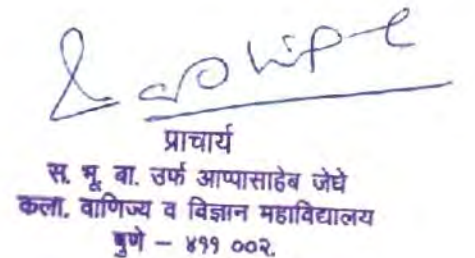 प्राचार्य
स. भू. बा. उर्फ आप्पासाहेब जेधे
कला. वाणिज्य व विज्ञान महाविद्यालय
पुणे – ४११ ००२.